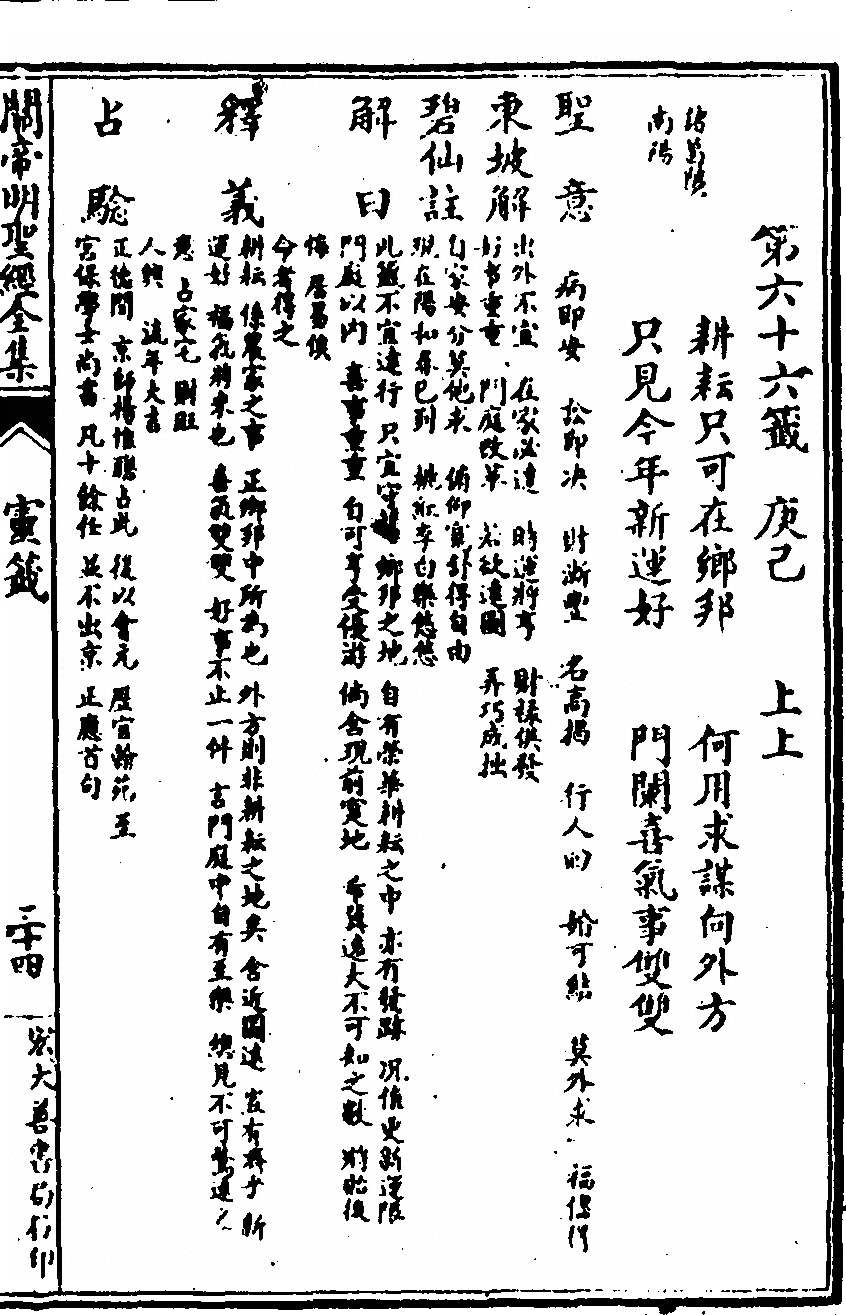 第六十六籤　庚己　　上上
諸葛隱
南陽
耕耘只可在鄉邦　何用求謀向外方
只見今年新運好　門闌喜氣事雙雙
聖意　病即安　訟即决　財漸豐　名高揭　行人的　婚可結　莫外求　福優得
東坡解　出外不宜　在家必達　時運將亨　財祿俱發
好事重重　門庭改革　若欲遠圖　弄巧成拙
碧仙註　自家安分莫他求　俯仰寬舒得自由
現在陽和春已到　桃紅李白樂悠悠
解曰　此籤不宜遠行　只宜守舊　鄉邦之地　自有榮華　耕耘之中　亦有發跡　况值更新運限
門庭以內　喜事重重　自可享受優游　倘舍現前實地　希踪遠大不可知之數　將貽後
悔　居易俟
命者得之
釋義　耕耘　係農家之事　正鄉邦中所為也　外方則非耕耘之地矣　舍近圖遠　豈有濟乎　新
運好　福氣將來也　喜氣雙雙　好事不止一件　言門庭中自有至樂　總見不可驚遠之
意　占家宅　財旺
人興　流年大吉
占驗　正德間　京師楊惟聰占此　後以會元　歷官翰苑　至
宮保學士尚書　凡十餘任　並不出京　正應首句
關帝明聖經全集
靈籤
三十四
宏大善書局石印